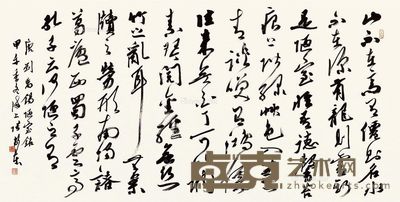 山不在高有僊则名水
不在深有龙则灵斯
是陋室惟吾德馨苔
痕上阶绿草色入帘
青谈笑有鸿儒
往来无白丁可以调
素琴阅金经无丝
竹之乱耳无案
牍之劳形南阳诸
葛庐西蜀子云亭
孔子云何陋之有
唐刘禹锡陋室铭
甲午
艺术网